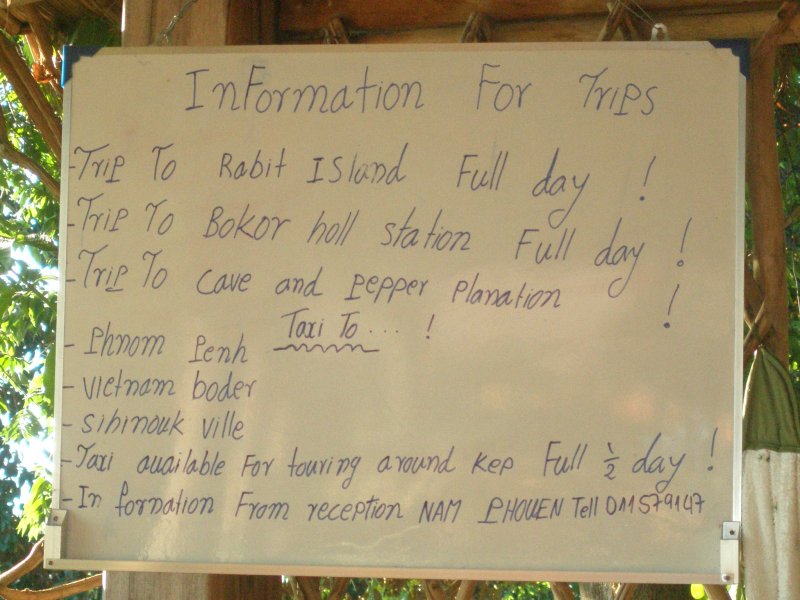 InFormation For Trips
-Trip To Rabit ISland Full day !
-Trip To Bokor holl station Full day !
-Trip To cave and pepper planation !
Taxi To.... !
- Phnom penh
- vietnam boder
- sihinouk ville
-Taxi available For touring around kep Full ½ day !
-In fornation From reception NAM PHOUEN Tell 011579147